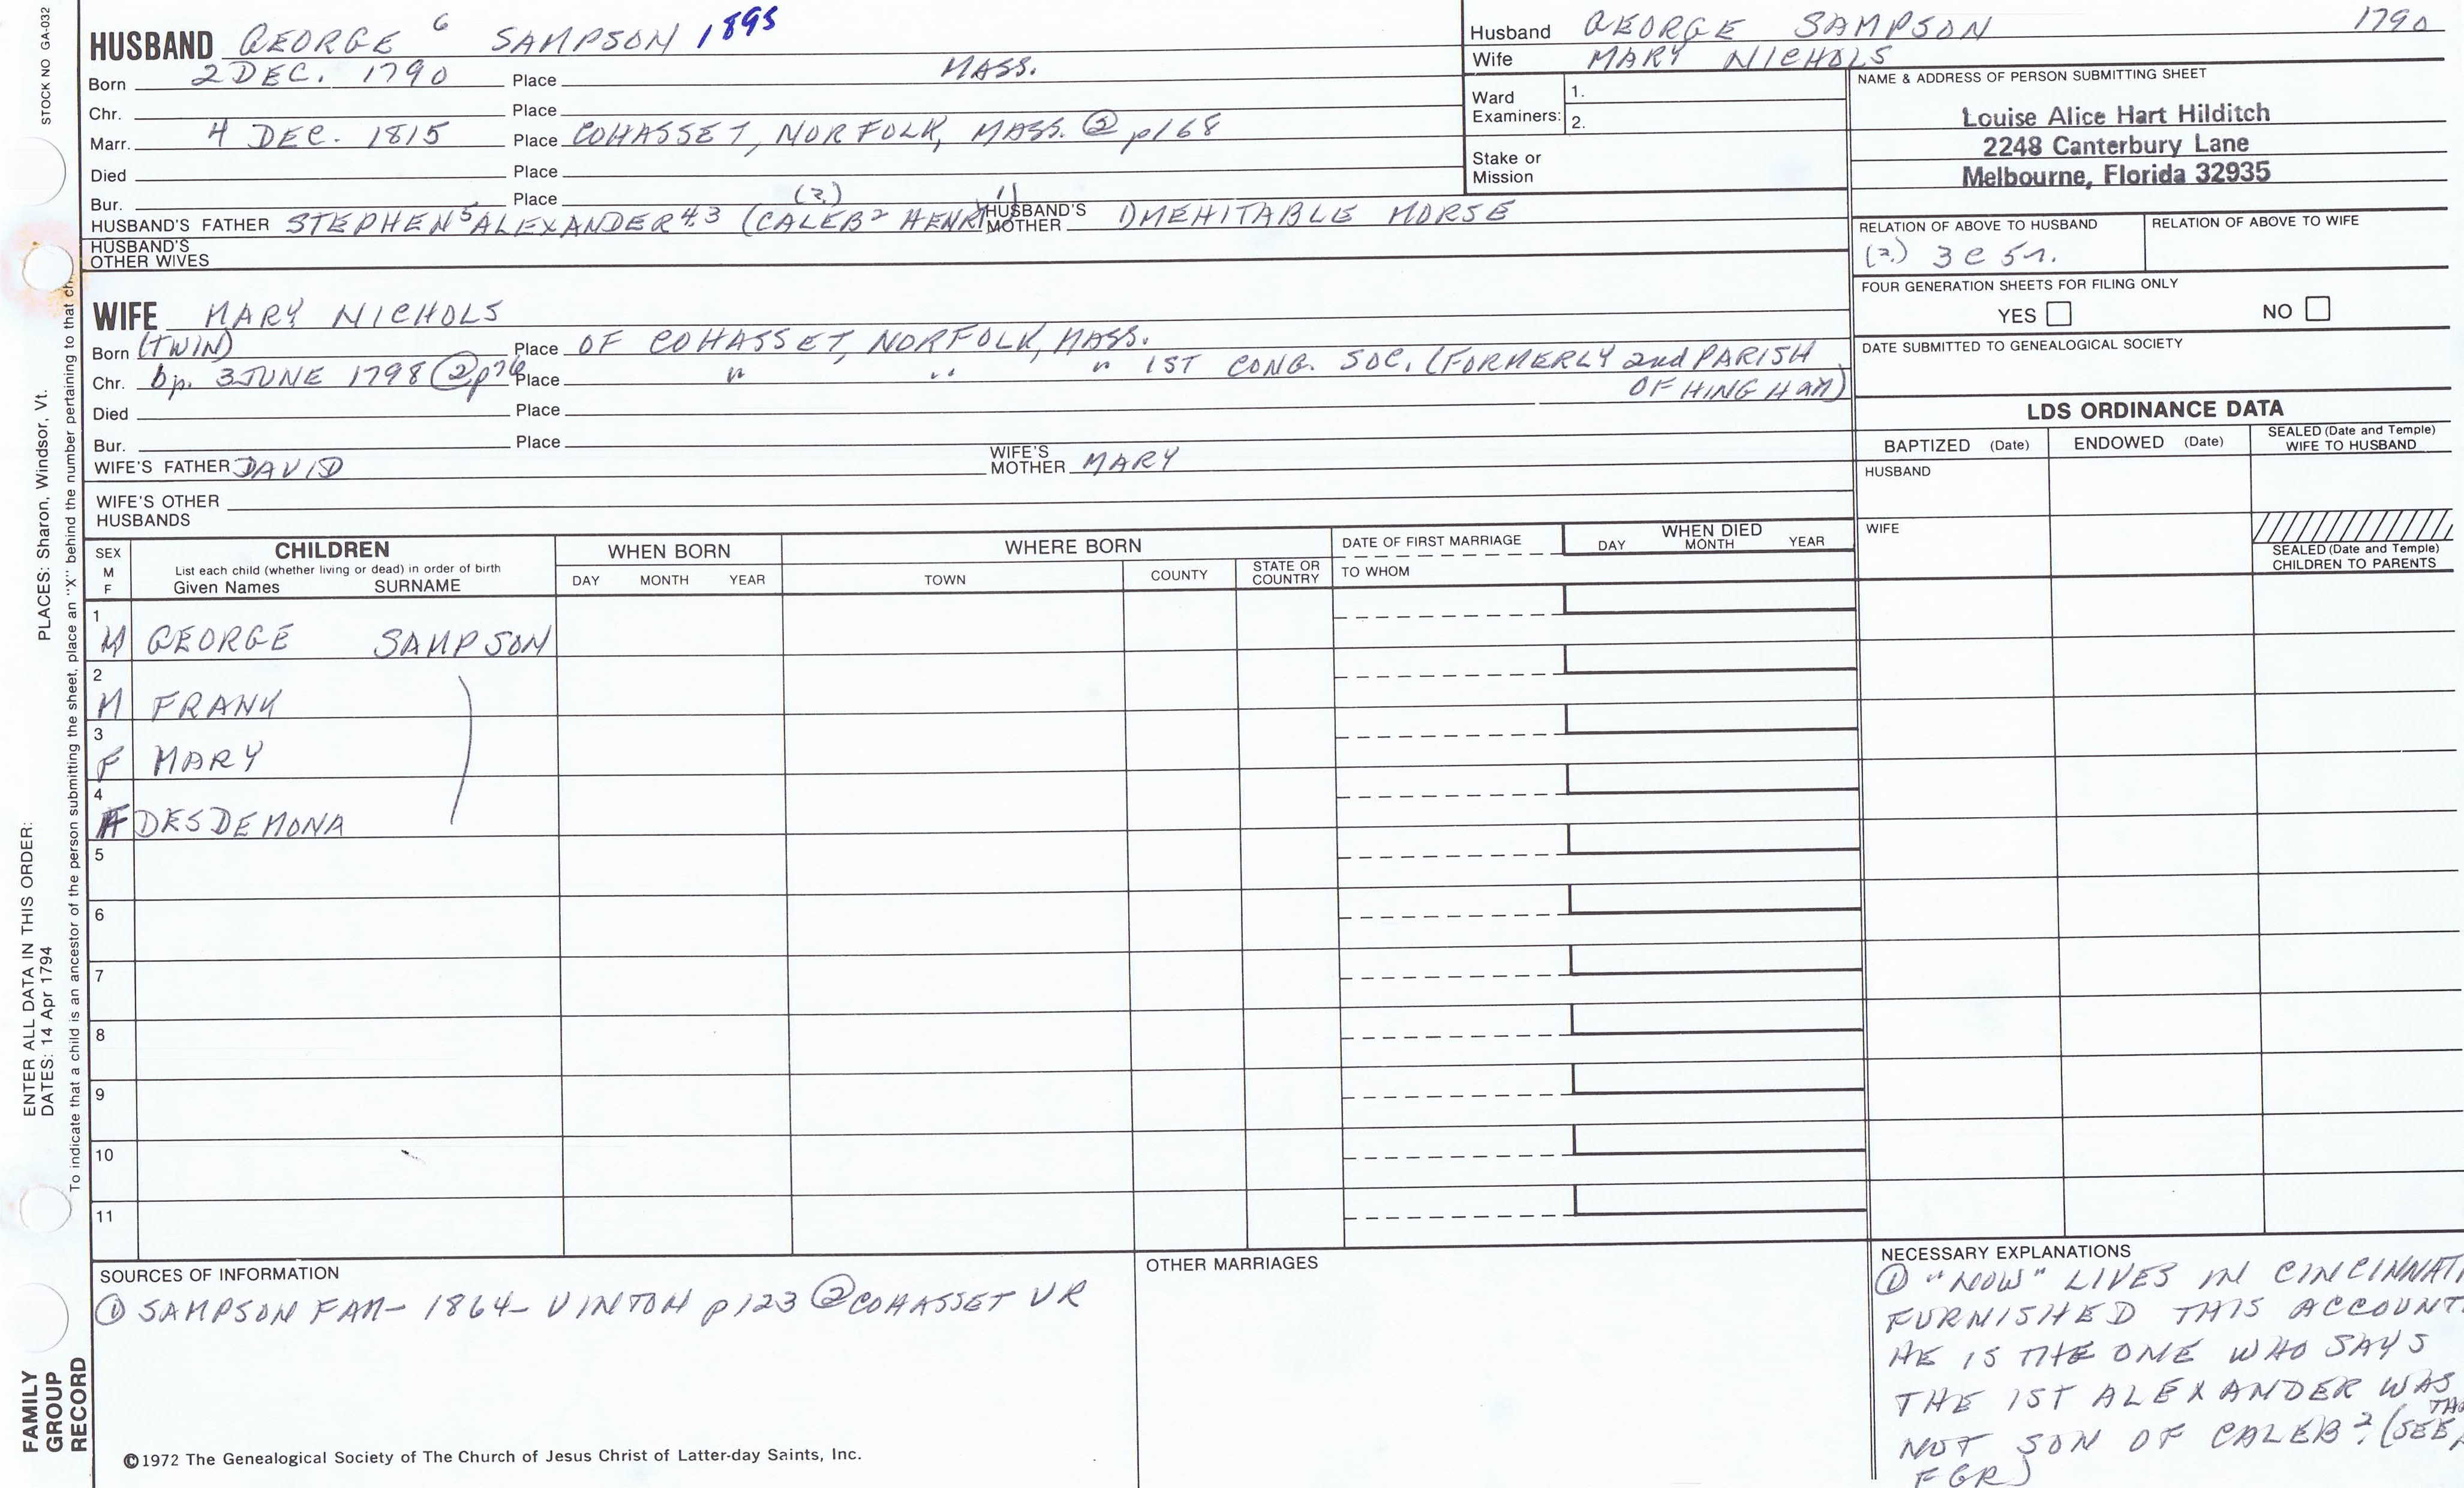 STOCK NO GA-032
PLACES: Sharon, Windsor, Vt.
ENTER ALL DATA IN THIS ORDER:
DATES: 14 Apr 1794
To indicate that a child is an ancestor of the person submitting the sheet, place an "X" behind the number pertaining to that ch
FAMILY
GROUP
RECORD
HUSBAND GEORGE 6 SAMPSON 1895
Born 2 DEC. 1790 Place MASS.
Chr. Place
Marr. 4 DEC. 1815 Place COHASSET, NORFOLK, MASS. ② p168
Died Place
Bur. Place (?) 1)
HUSBAND'S FATHER STEPHEN5 ALEXANDER4,3 (CALEB2 HENRY HUSBAND'S MOTHER ① MEHITABLE MORSE
HUSBAND'S
OTHER WIVES
WIFE MARY NICHOLS
Born (TWIN) Place OF COHASSET, NORFOLK, MASS.
Chr. bp. 3 JUNE 1798 ② p76 Place " " " 1ST CONG. SOC. (FORMERLY 2nd PARISH
OF HINGHAM)
Died Place
Bur. Place
WIFE'S FATHER DAVID WIFE'S MOTHER MARY
WIFE'S OTHER
HUSBANDS
Husband GEORGE SAMPSON 1790
Wife MARY NICHOLS
Ward
Examiners: 1.
2.
Stake or
Mission
NAME & ADDRESS OF PERSON SUBMITTING SHEET
Louise Alice Hart Hilditch
2248 Canterbury Lane
Melbourne, Florida 32935
RELATION OF ABOVE TO HUSBAND RELATION OF ABOVE TO WIFE
(?) 3 C 5 r.
FOUR GENERATION SHEETS FOR FILING ONLY
YES NO
DATE SUBMITTED TO GENEALOGICAL SOCIETY
LDS ORDINANCE DATA
BAPTIZED (Date) ENDOWED (Date) SEALED (Date and Temple)
WIFE TO HUSBAND
HUSBAND
WIFE
SEALED (Date and Temple)
CHILDREN TO PARENTS
SEX
M
F
CHILDREN
List each child (whether living or dead) in order of birth
Given Names SURNAME
WHEN BORN
DAY MONTH YEAR
WHERE BORN
TOWN COUNTY STATE OR
COUNTRY
DATE OF FIRST MARRIAGE
TO WHOM
WHEN DIED
DAY MONTH YEAR
1
M GEORGE SAMPSON
2
M FRANK
3
F MARY
4
F DESDEMONA
5
6
7
8
9
10
11
SOURCES OF INFORMATION
① SAMPSON FAM- 1864- VINTON p123 ② COHASSET VR
©1972 The Genealogical Society of The Church of Jesus Christ of Latter-day Saints, Inc.
OTHER MARRIAGES
NECESSARY EXPLANATIONS
① "NOW" LIVES IN CINCINNATI
FURNISHED THIS ACCOUNT.
HE IS THE ONE WHO SAYS
THE 1ST ALEXANDER WAS
NOT SON OF CALEB2. (SEE
FGR)